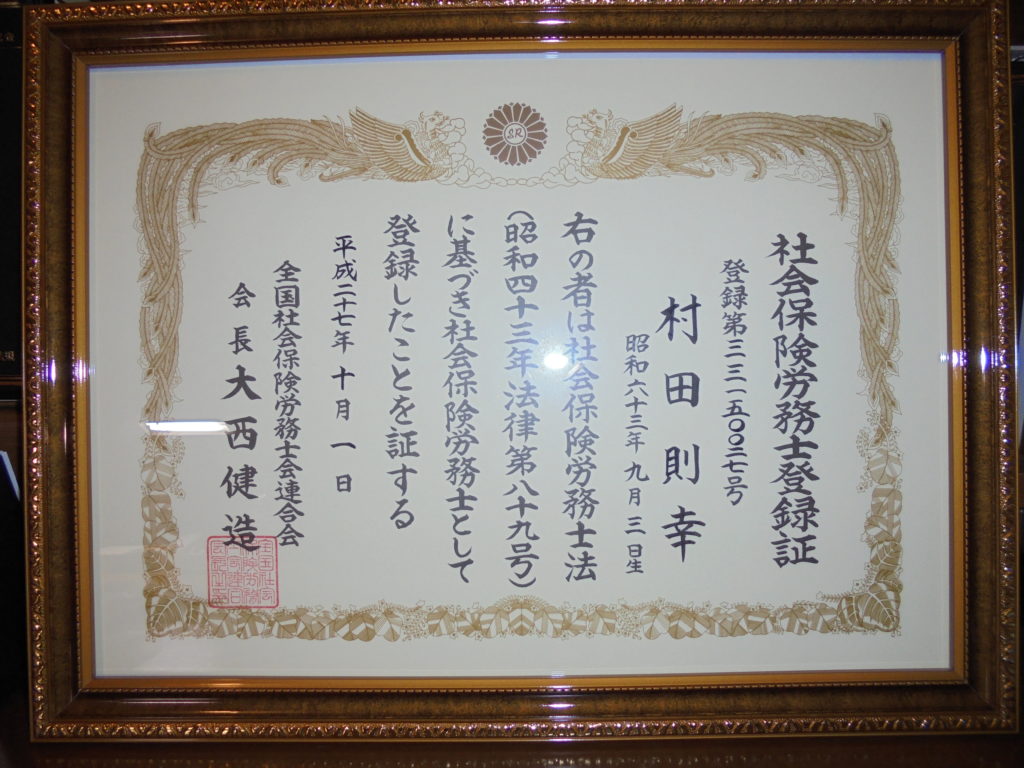 社会保険労務士登録証
登録第三三一五〇〇二七号
村田則幸
昭和六十三年九月三日生
右の者は社会保険労務士法
(昭和四十三年法律第八十九号)
に基づき社会保険労務士として
登録したことを証する
平成二十七年十月一日
全国社会保険労務士会連合会
会長大西健造
SR